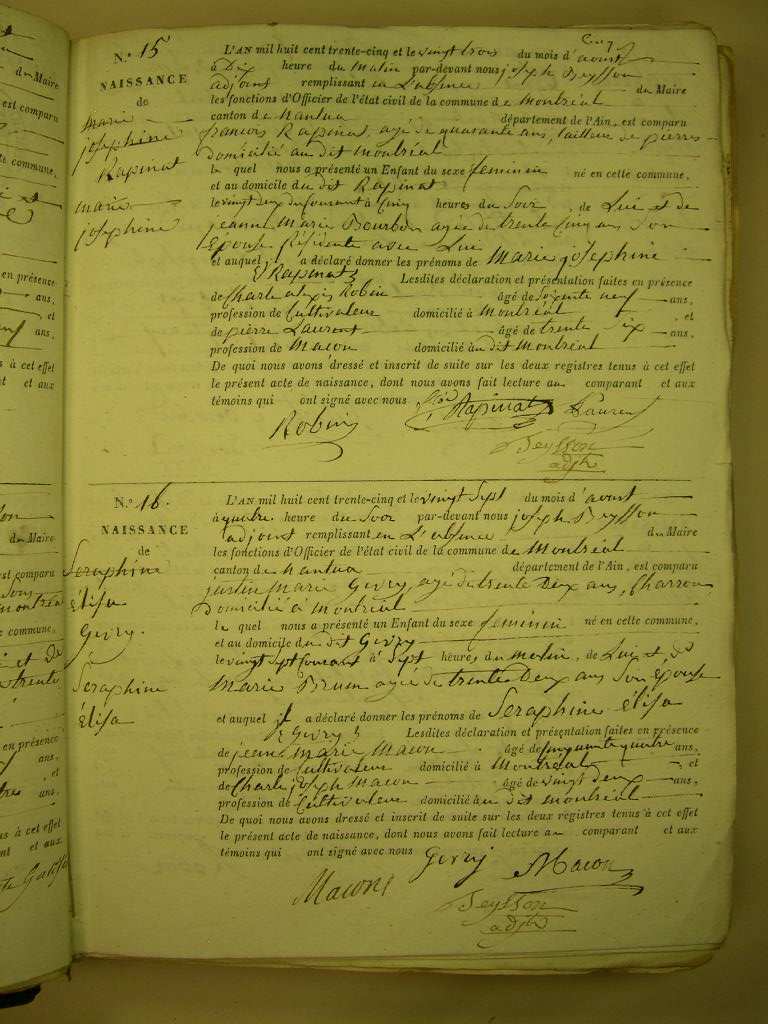 N.º 15
NAISSANCE
de
marie
josephine
Rapinat
marie
josephine
L'AN mil huit cent trente-cinq et le vingt trois du mois d'aout
à Dix heure du matin par-devant nous joseph Beysson
adjoint remplissant en L'absence du Maire
les fonctions d'Officier de l'état civil de la commune de montréal
canton de nantua département de l'Ain, est comparu
francois Rapinat, agé de quarante ans, tailleur de pierres
Domicilié au dit montréal
le quel nous a présenté un Enfant du sexe feminin né en cette commune,
et au domicile du dit Rapinat
le vingt deux du courant à Cinq heures du Soir, de Lui et de
jeanne marie Bourbon agée de trente Cinq ans Son
Epouse Résidente avec Lui
et auquel il a déclaré donner les prénoms de marie josephine
(Rapinat) Lesdites déclaration et présentation faites en présence
de Charle alexis Robin âgé de soixente neuf ans,
profession de Cultivateur domicilié à montréal et
de pierre Laurent âgé de trente Six ans,
profession de macon domicilié au dit montréal
De quoi nous avons dressé et inscrit de suite sur les deux registres tenus à cet effet
le présent acte de naissance, dont nous avons fait lecture au comparant et aux
témoins qui ont signé avec nous
Rapinat Laurent
Robin
Beysson
adjt
N.º 16.
NAISSANCE
de
Seraphine
élisa
Gevry.
Seraphine
élisa
L'AN mil huit cent trente-cinq et le vingt Sept du mois d'aoust
à quatre heure du Soir par-devant nous joseph Beysson
adjoint remplissant en L'absence du Maire
les fonctions d'Officier de l'état civil de la commune de Montréal
canton de nantua département de l'Ain, est comparu
justin Marie Gevry, agé de trente Deux ans, Charron
Domicilié à montréal
le quel nous a présenté un Enfant du sexe feminin né en cette commune,
et au domicile du dit Gevry
le vingt sept courant à Sept heures du matin, de Lui et de
marie Brun agée de trente Deux ans Son épouse
et auquel il a déclaré donner les prénoms de Seraphine élisa
(Gevry) Lesdites déclaration et présentation faites en présence
de jean marie Macon âgé de cinquante quatre ans,
profession de Cultivateur domicilié à montréal et
de Charle joseph Macon âgé de vingt deux ans,
profession de Cultivateur domicilié au dit montréal
De quoi nous avons dressé et inscrit de suite sur les deux registres tenus à cet effet
le présent acte de naissance, dont nous avons fait lecture au comparant et aux
témoins qui ont signé avec nous
Gevry Macon
Macon
Beysson
adjt